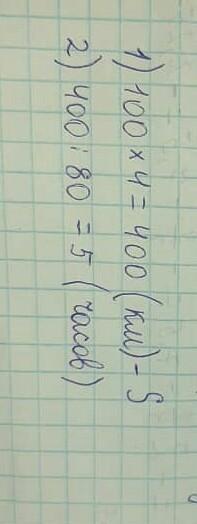 1) 100 × 4 = 400 (км) - S
2) 400 : 80 = 5 (часов)